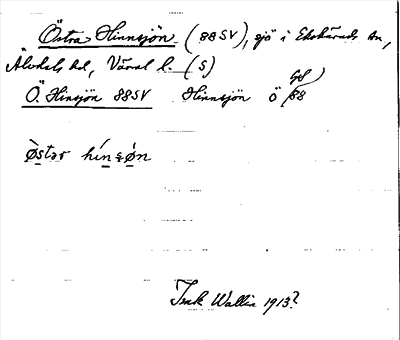 Östra Hinnsjön (88SV), sjö i Ekshärads sn,
Älvdals hd, Värml l. (S)
Ö. Hinsjön 88SV Hinnsjön Ö 88
østər hínsøn
Isak Wallin 1913?